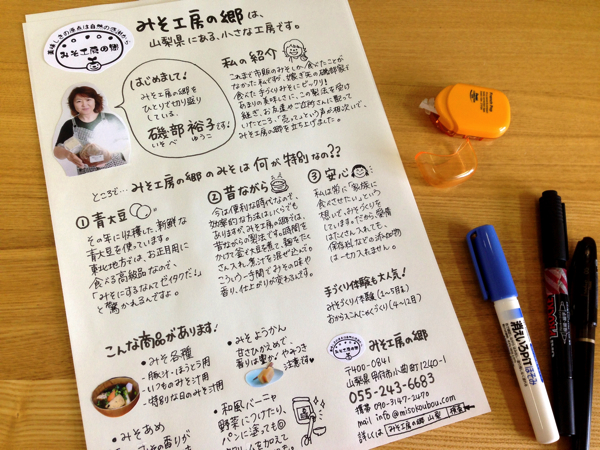 美味しさの原点は自然の恵みから
みそ工房の郷
みそ工房の郷は、
山梨県にある、小さな工房です。
はじめまして!
みそ工房の郷を
ひとりで切り盛り
している、
磯部裕子です!
いそべ ゆうこ
私の紹介
これまで市販のみそしか食べたことが
なかった私ですが、嫁ぎ先の磯部家で
食べた手づくりみそにビックリ!
あまりの美味しさに、この製法を受け
継ぎ、お友達やご近所さんに配って
いたところ、「売って」という声が相次いで、
みそ工房の郷を立ち上げました。
ところで…みそ工房の郷のみそは何が特別なの??
①青大豆
その年に収穫した、新鮮な
青大豆を使っています。
東北地方では、お正月用に
食べる高級品なので、
「みそにするなんてゼイタクだ!」
と驚かれるんですよ。
②昔ながら
今は便利な時代なので、
効率的な方法はいくらでも
ありますが、みそ工房の郷では、
昔ながらの製法です。時間を
かけて釜で大豆を煮、麹をたく
さん入れ、煮汁を混ぜ込んで。
こういう一手間でみその味や
香り、仕上がりが変わるんです。
③安心
私は常に「家族に
食べさせたい」という
想いで、おみそづくりを
しています。だから、愛情
はたくさん入っても、
保存料などの添加物
は一切入れません。
手づくり体験も大人気!
みそづくり体験(1〜5月)
おからこんにゃくづくり(4〜12月)
こんな商品があります!
・みそ各種
-豚汁・ほうとう用
-いつものみそ汁用
-特別な日のみそ汁用
・みそようかん
甘さひかえめで、
香りは豊か♪やみつき
注意です♥
・みそあめ
みその香りが
・和風バーニャ
野菜につけたり、
パンに塗っても◎
クリームを加えて
みそ工房の郷
みそ工房の郷
〒400-0841
山梨県甲府市小曲町1240-1
055-243-6683
携帯 090-3147-2470
mail info@misokoubou.com
詳しくは みそ工房の郷 山梨 検索
消えいろPiT